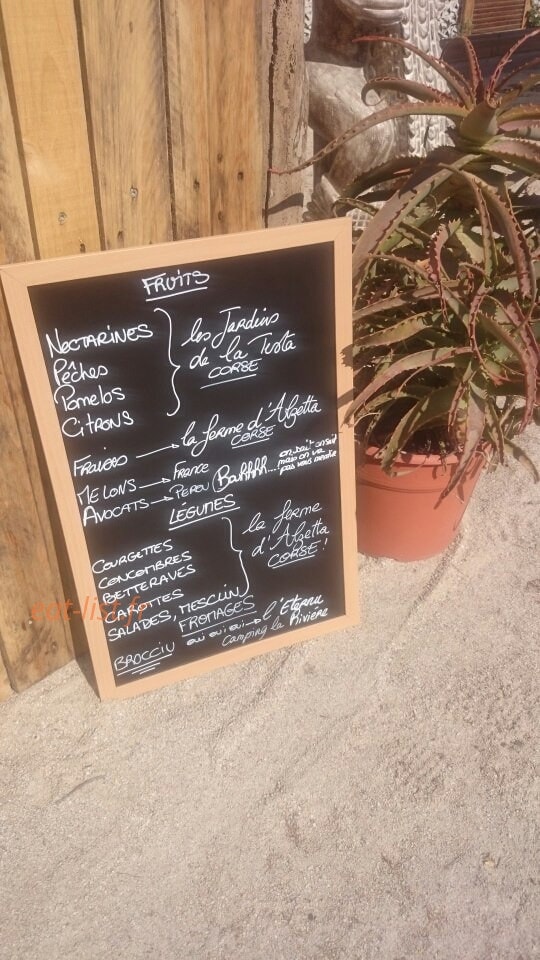 FRUITS
NECTARINES
Pêches
Pomelos
CITRONS
les Jardins
de la Testa
CORSE
FRAISES
la ferme d'Alzetta
CORSE
MELONS
France
AVOCATS
PEROU
Bouhhhh...
on sait on sait
mais on va
pas vous mentir
LEGUMES
COURGETTES
CONCOMBRES
BETTERAVES
CAROTTES
SALADES, MESCLUN
la ferme
d'Alzetta
CORSE !
FROMAGES
BROCCIU
oui oui oui
l'Eternu
Camping la Rivière
eat-list.fr